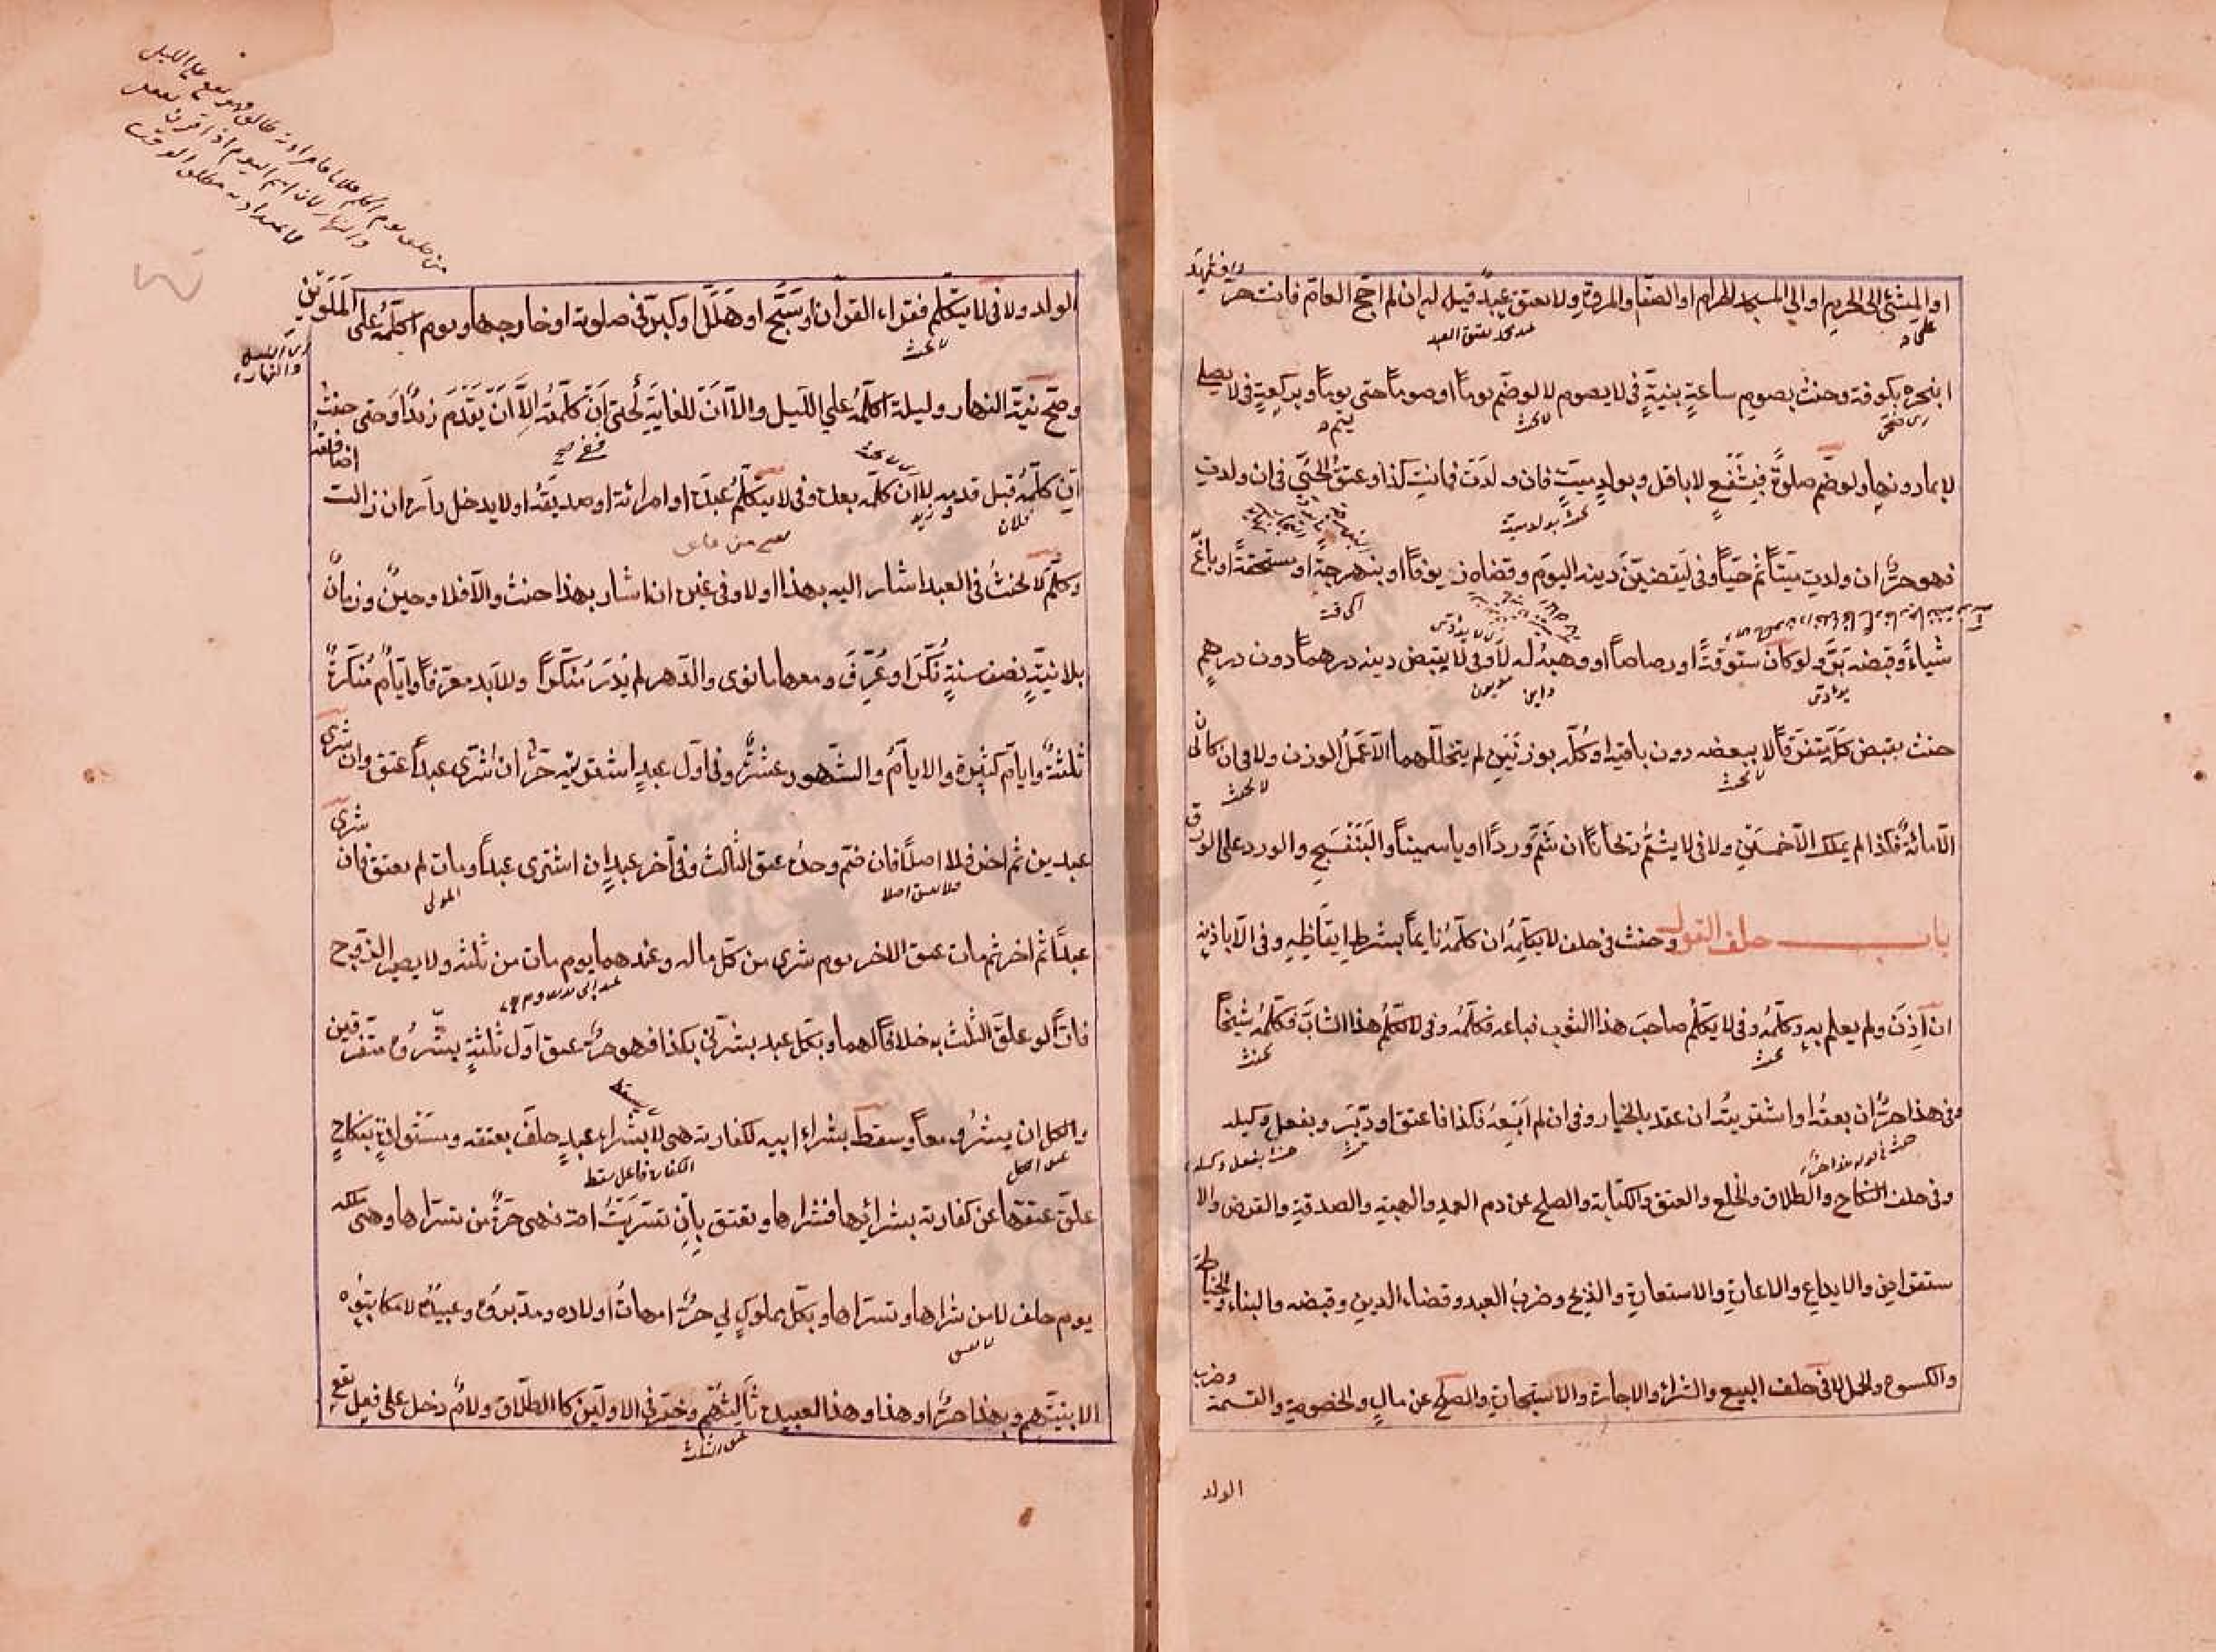 او المشي الى الحرم او الى المسجد الحرام او الصفا والمروة ولا يعتق عبد قيل له ان لم احج العام فانت حر وشهد
عليه
عند محمد يعتق العبد
بنحره بكوفة وحنث بصوم ساعة بنية في لا يصوم لا لو ضم يوما او صوما حتى يوما وبركعة في لا يصلي
لا يحنث
يتم
لا بما دونها ولو ضم صلوة فبشفع لا باقل وبولد ميت فان ولدت فانت كذا وعتق الحي في ان ولدت
يحنث بولد ميت
فهو حر ان ولدت ميتا ثم حيا وفي ليقضين دينه اليوم وقضاه زيوفا او بنهرجة او مستحقة او باعه
شياء وقبضه بر ولو كان ستوقة او رصاصا او وهبه له لا وفي لا يقبض دينه درهما دون درهم
داين مديون
حنث بقبض كله متفرقا لا ببعضه دون باقيه او كله بوزنين لم يتخللهما الا عمل الوزن ولا في ان كان لي
لا يحنث
لا يحنث
الا مائة فكذا لم يملك الا خمسين ولا في لا يشم ريحانا ان شم وردا او ياسمينا والبنفسج والورد على الورق
باب حلف القول وحنث في حلف لا يكلمه ان كلمه نايما بشرط ايقاظه وفي الا باذنه
ان اذن ولم يعلم به وكلمه وفي لا يكلم صاحب هذا الثوب فباعه فكلمه وفي لا يكلم هذا الشاب فكلمه شيخا
يحنث
يحنث
وفي هذا حر ان بعته او اشتريته ان عقد بالخيار وفي ان لم ابعه فكذا فاعتق او دبر وبفعل وكيله
وفي حلف النكاح والطلاق والخلع والعتق والكتابة والصلح عن دم العمد والهبة والصدقة والقرض والا
ستقراض والايداع والاعارة والاستعارة والذبح وضرب العبد وقضاء الدين وقبضه والبناء والخياطة
والكسوة والحمل لا في حلف البيع والشراء والاجارة والاستيجار والصلح عن مال والخصومة والقسمة وضرب
الولد
الولد ولا في لا يتكلم فقراء القران او سبح او هلل او كبر في صلوته او خارجها ويوم اكلمه على الملوين
لا يحنث
اي الليل والنهار
وصح نية النهار وليلة اكلمه على الليل والا ان للغاية كحتى ان كلمته الا ان يقدم زيد او حتى حنث
ان كلمه قبل قدومه لا ان كلمه بعده وفي لا يكلم عبده او امراته او صديقه او لا يدخل داره ان زالت اضافته
فلان
وكلم لا يحنث في العبد اشار اليه بهذا او لا وفي غيره ان اشار بهذا حنث والا فلا وحين وزمان
بلا نية نصف سنة نكر او عرف ومعها ما نوى والدهر لم يدر منكرا وللابد معرفا وايام منكرة
ثلثة وايام كثيرة والايام والشهور عشرة وفي اول عبد اشتريه حر ان اشترى عبدا عتق وان شرى
عبدين ثم اخر فلا اصلا فان ضم وحده عتق الثالث وفي آخر عبد ان اشترى عبدا ومات لم يعتق فان شرى
فلا يعتق اصلا
المولى
عبدا ثم اخر ثم مات عتق الاخر يوم شرى من كل ماله وعندهما يوم مات من ثلثه ولا يصير الزوج
فارا لو علق الثلث به خلافا لهما وبكل عبد بشرني بكذا فهو حر عتق اول ثلثة بشروه متفرقين
والكل ان بشروه معا وسقط بشراء ابيه لكفارته هي لا بشراء عبد حلف بعتقه ومستولدة بنكاح
عتق الكل
الكفارة فاعل سقط
علق عتقها عن كفارته بشرائها فشراها وتعتق بان تسريت امة فهي حرة من تسراها وهي ملكه
يوم حلف لا من شراها وتسراها وبكل مملوك لي حر امهات اولاده ومدبروه وعبيده لا مكاتبوه
لا يعتق
الا بنيتهم وبهذا حر او هذا وهذا لعبيده ثالثهم وخير في الاولين كالطلاق ولام دخل على فعل يقع
عتق الثالث